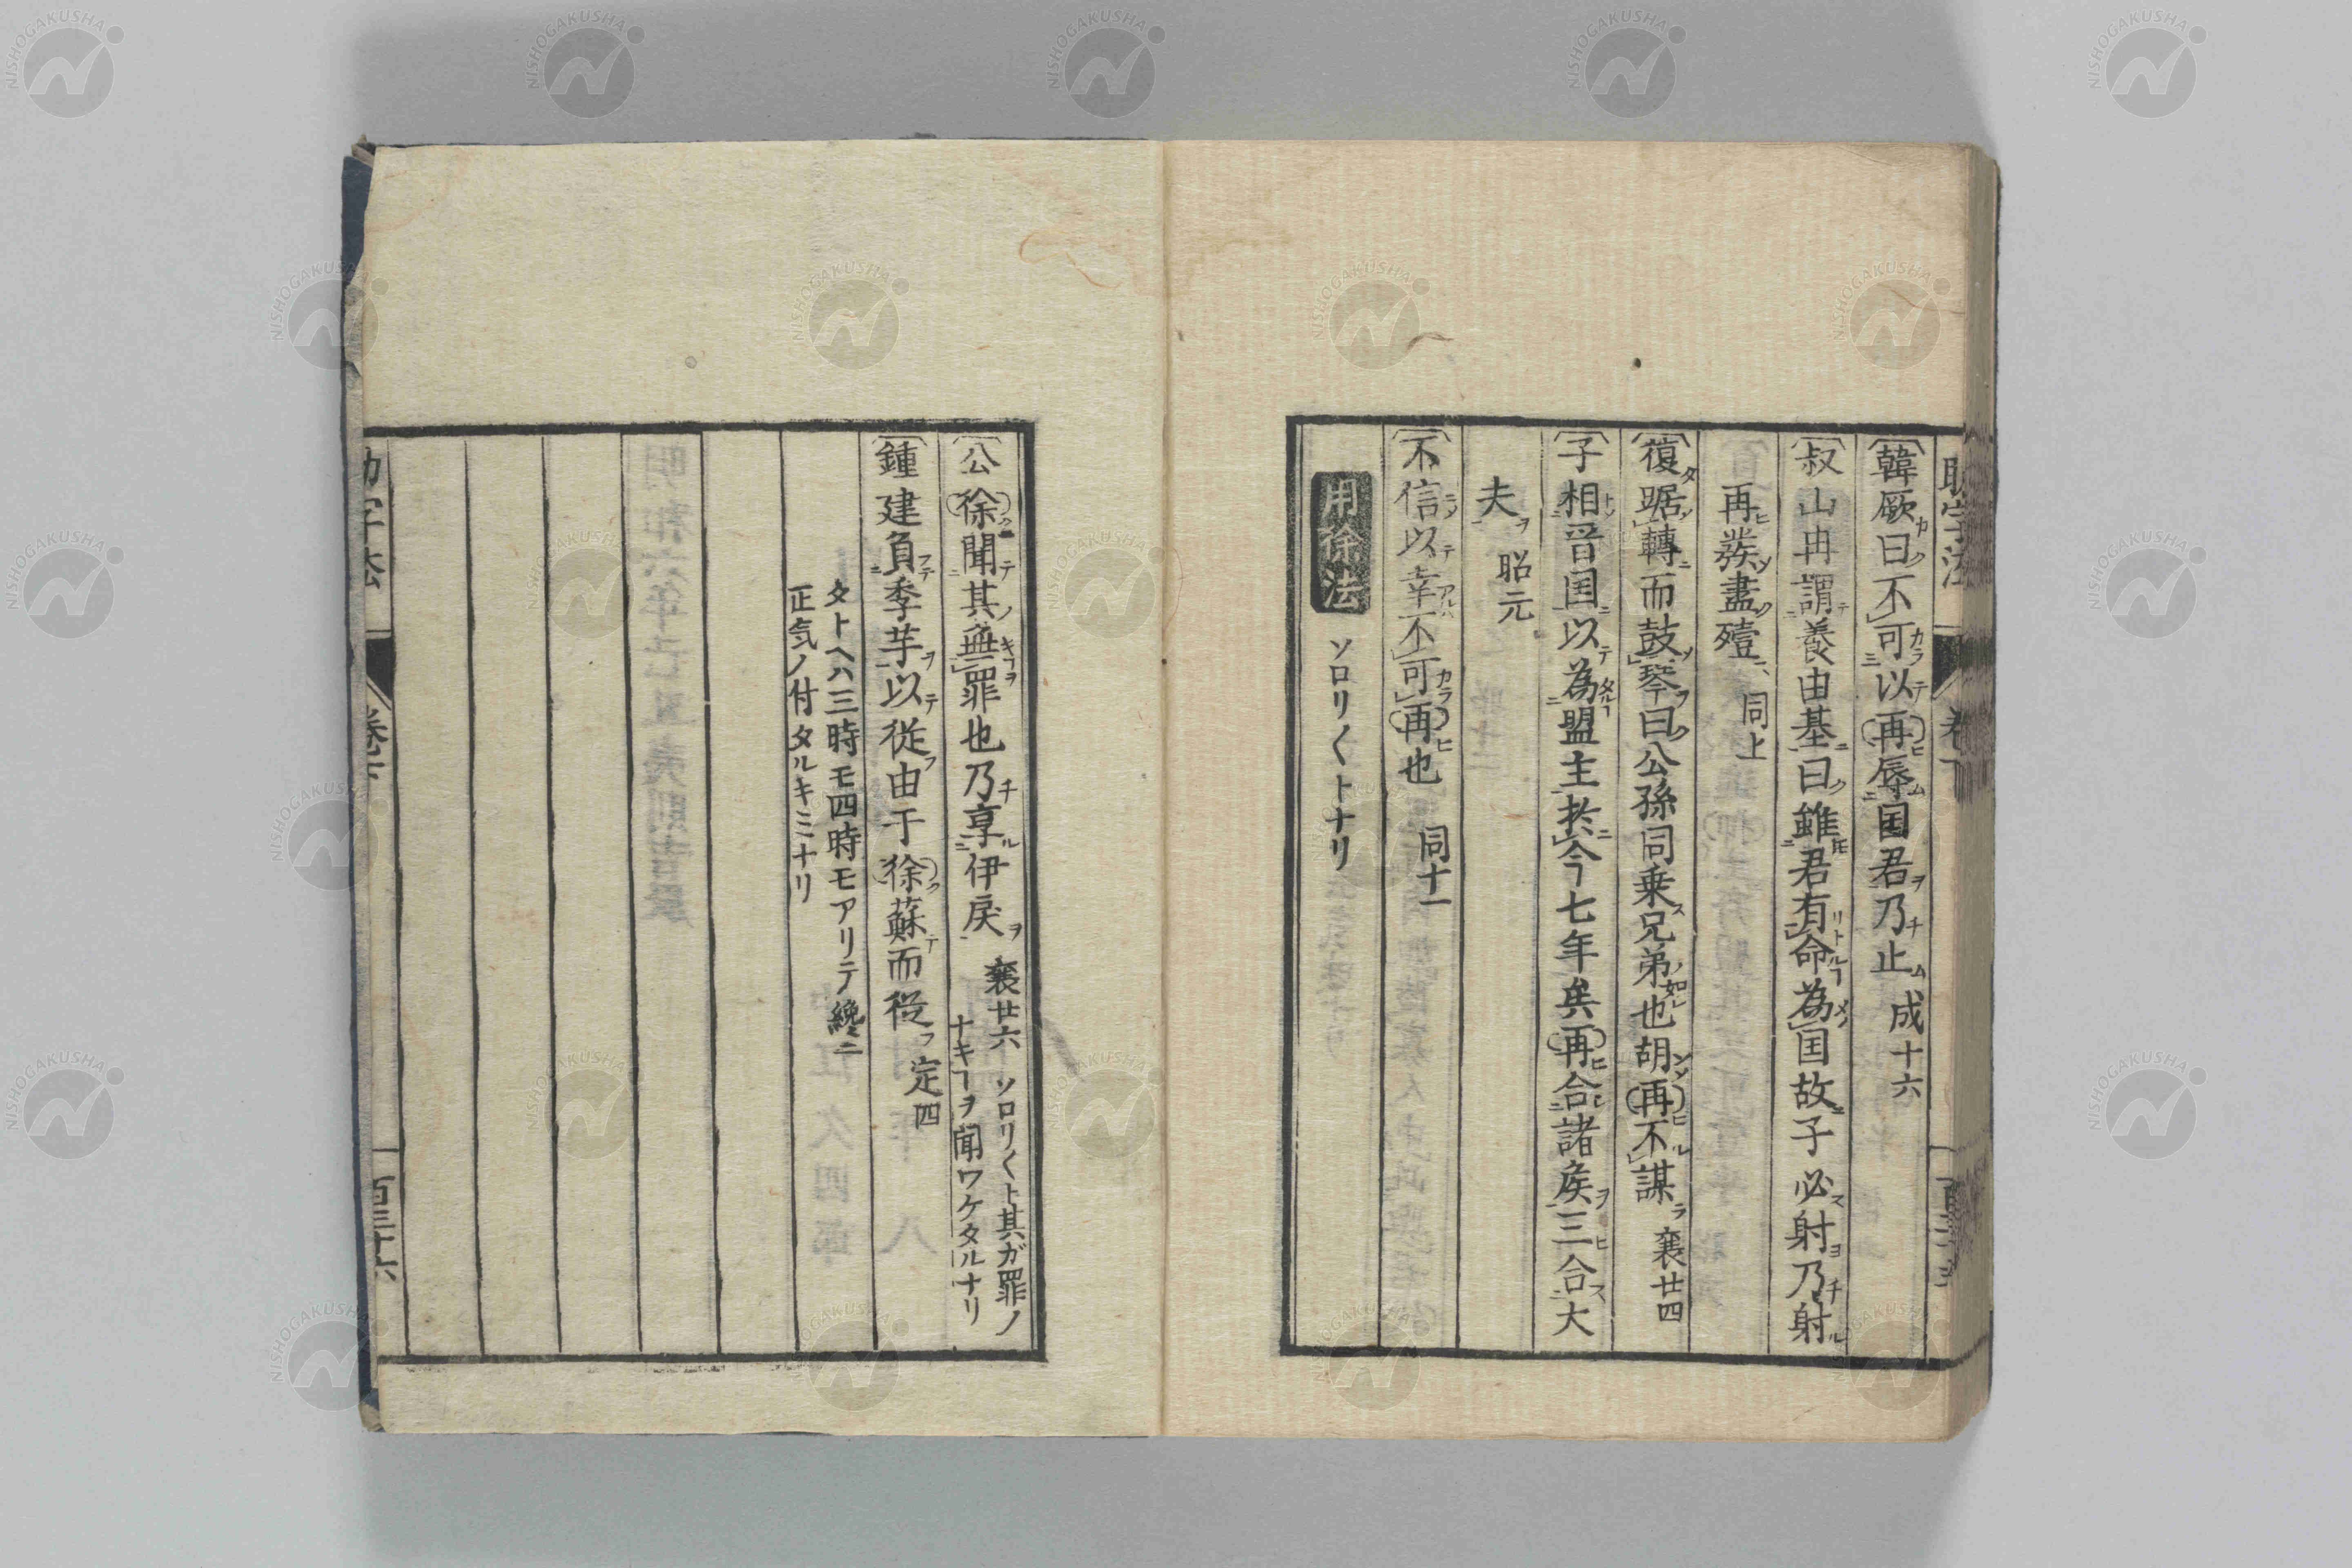 韓厥曰不可以再辱国君乃止 成十六
叔山冉謂養由基曰雖君有命為国故子必射乃射
再発盡殪 同上
復踞轉而鼓琴曰公孫同乗兄弟也胡再不謀 襄廿四
子相晋国以為盟主於今七年矣再合諸矦三合大
夫 昭元
不信以幸不可再也 同十一
用徐法 ソロリ〱トナリ
公徐聞其無罪也乃亨伊戻 襄廿六 ソロリ〱ト其ガ罪ノ
ナキヿヲ聞ワケタルナリ
鍾建負季芊以従由于徐蘇而従 定四
タトヘハ三時モ四時モアリテ纔ニ
正気ノ付タルキミナリ
助字法 巻下 百三十六
NISHOGAKUSHA